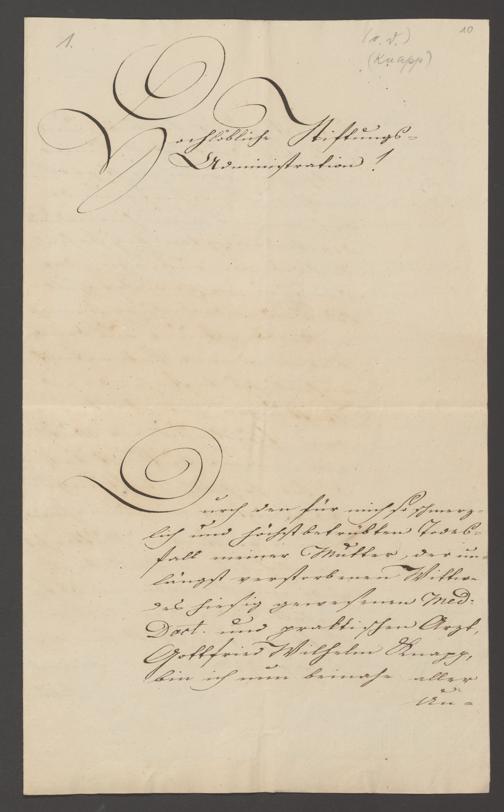 1.
10
(o. D.)
(Knapp)
Hochlöbliche Stiftungs-
Administration!
Durch den für mich so schmerz-
lich und höchst betrübten Todes-
fall meiner Mutter, der un-
längst verstorbenen Wittwe
des hiesig gewesenen Med:
Doct. und praktischen Arzt,
Gottfried Wilhelm Knapp,
bin ich nun beinahe aller
Un-